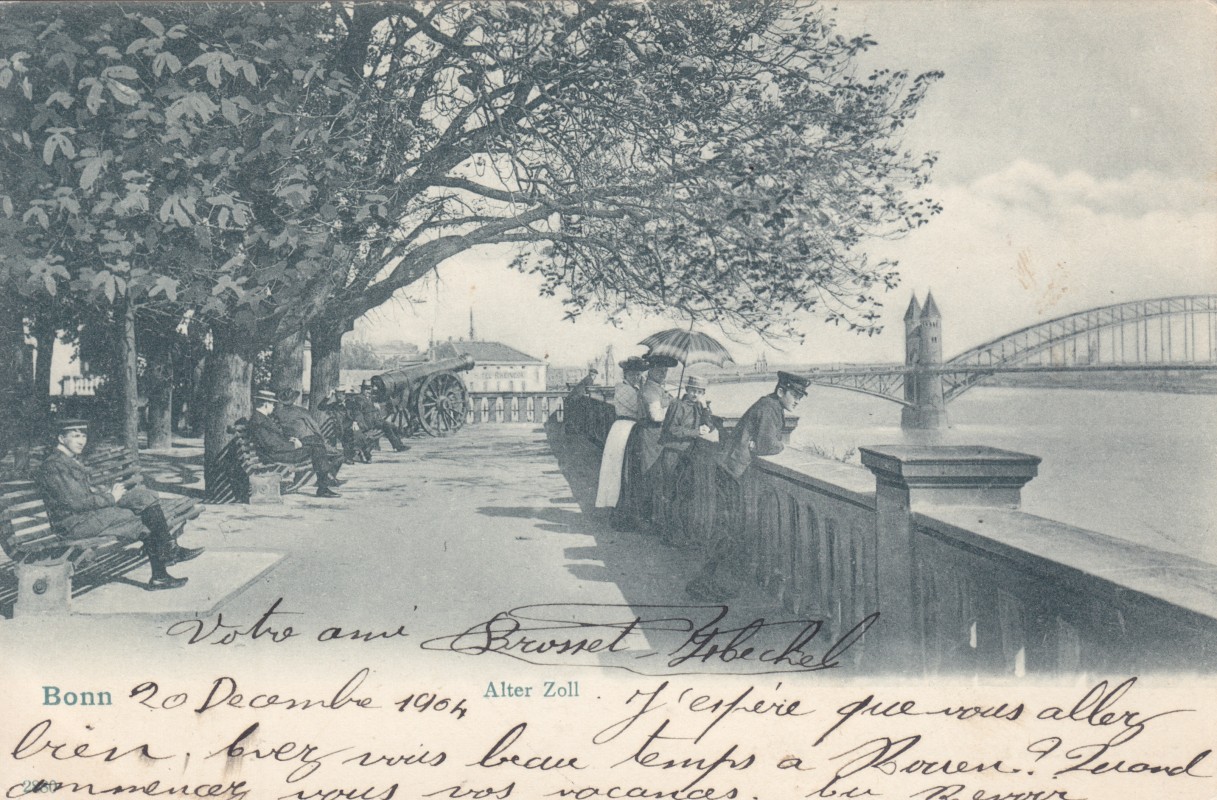 Votre ami Brosset
Bonn 20 Decembre 1904 Alter Zoll J'espère que vous allez
bien, Avez vous beau temps a Rouen? Quand
2880 commencez vous vos vacances. Au Revoir